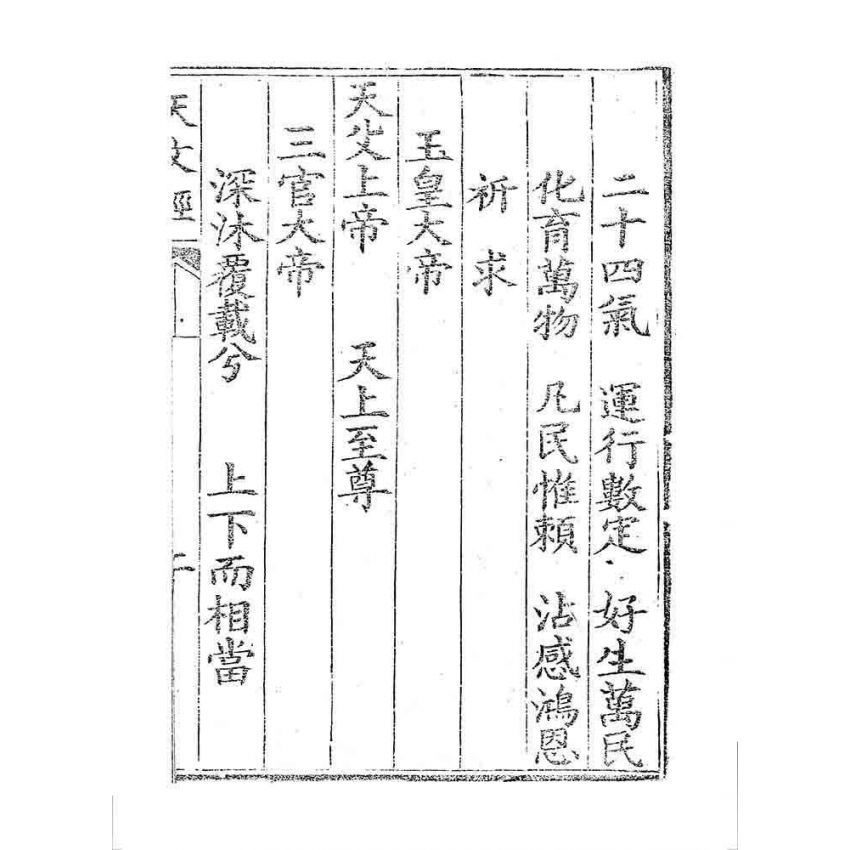 二十四氣 運行數定 好生萬民
化育萬物 凡民惟賴 沾感鴻恩
祈求
玉皇大帝
天父上帝 天上至尊
三官大帝
深沐覆載兮 上下而相當
天文經 二